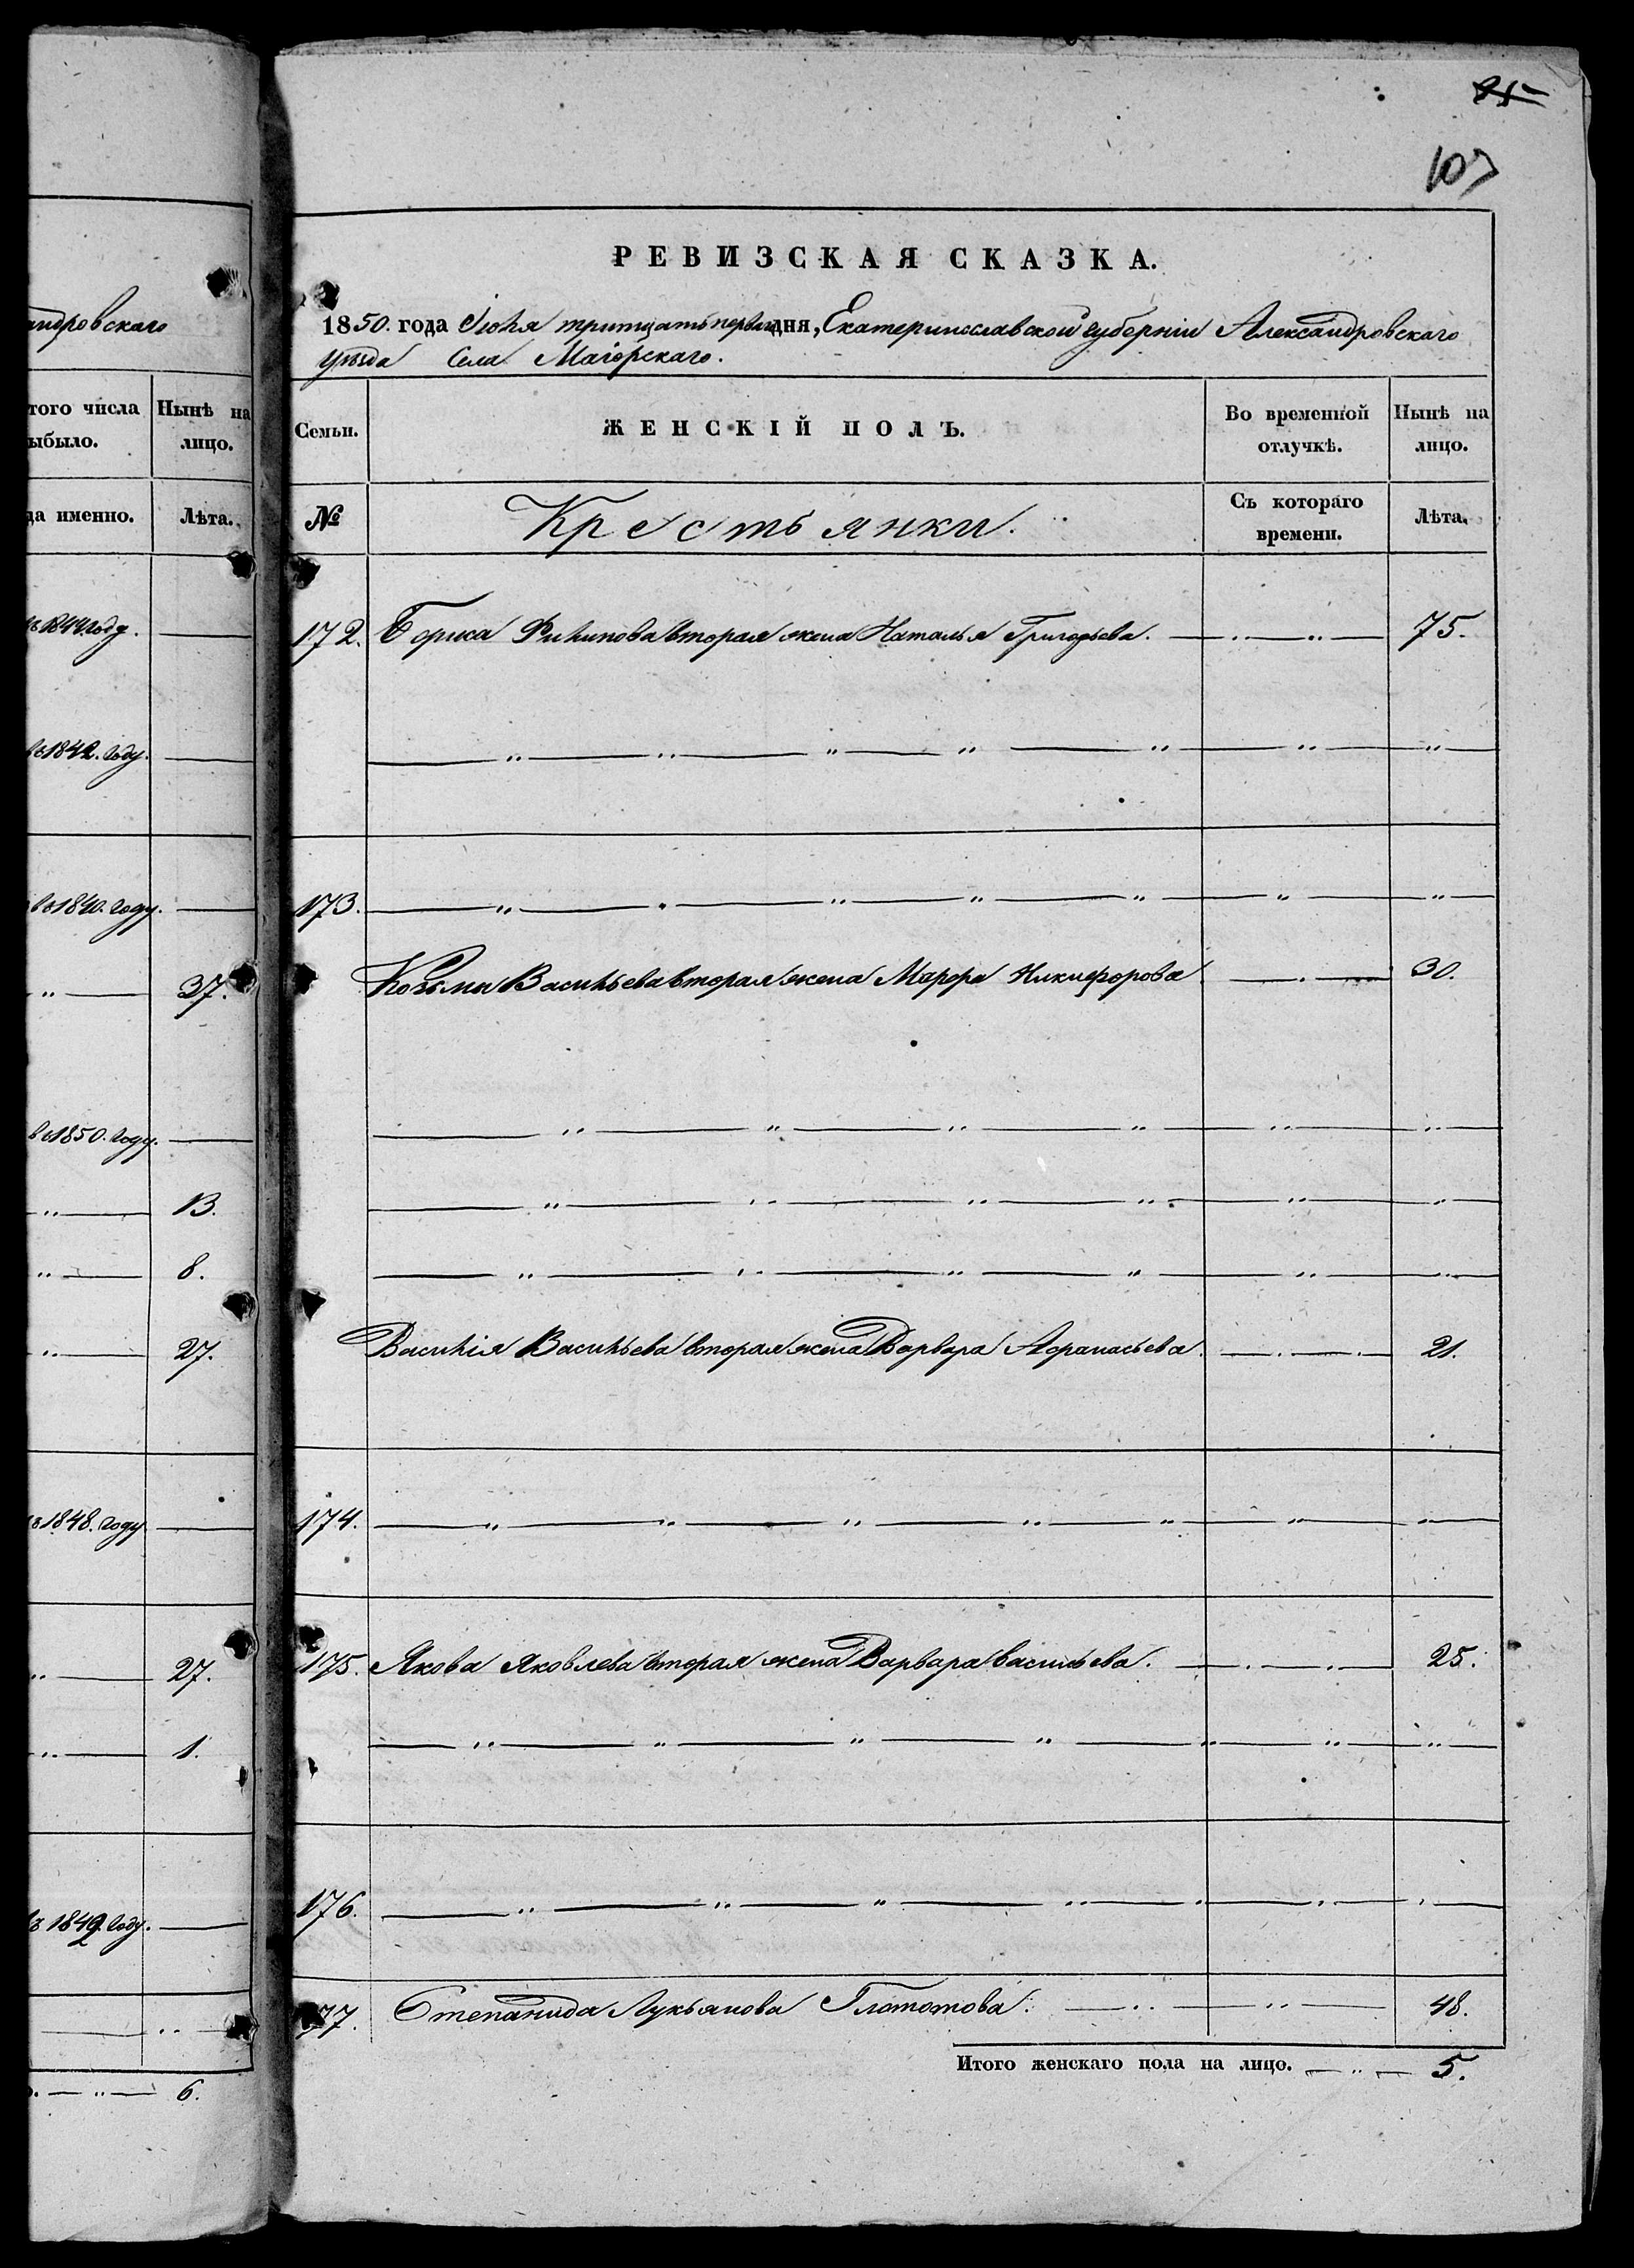 107
андровскаго
того числа
ыбыло.
Нынѣ на
лицо.
да именно.
Лѣта.
ъ 1844 году.
въ 1842. году.
въ 1840. году.
37.
въ 1850. году.
13.
8.
27.
въ 1848. году
27.
1.
въ 1849. году.
6.
РЕВИЗСКАЯ СКАЗКА.
1850. года Іюля тритцать перваго дня, Екатеринославской губерніи Александровскаго
уѣзда Села Маіорскаго.
Семьи.
ЖЕНСКІЙ ПОЛЪ.
Во временной
отлучкѣ.
Нынѣ на
лицо.
№
Крестьянки.
Съ котораго
времени.
Лѣта.
172. Бориса Филипова вторая жена Наталья Григорьева. 75.
173.
Козьмы Васильева вторая жена Марфа Никифорова 30.
Василія Васильева вторая жена Варвара Афанасьева. 21.
174.
175. Якова Яковлева вторая жена Варвара Васильева. 25.
176.
177. Степанида Лукьянова Глотова. 48.
Итого женскаго пола на лицо. 5.